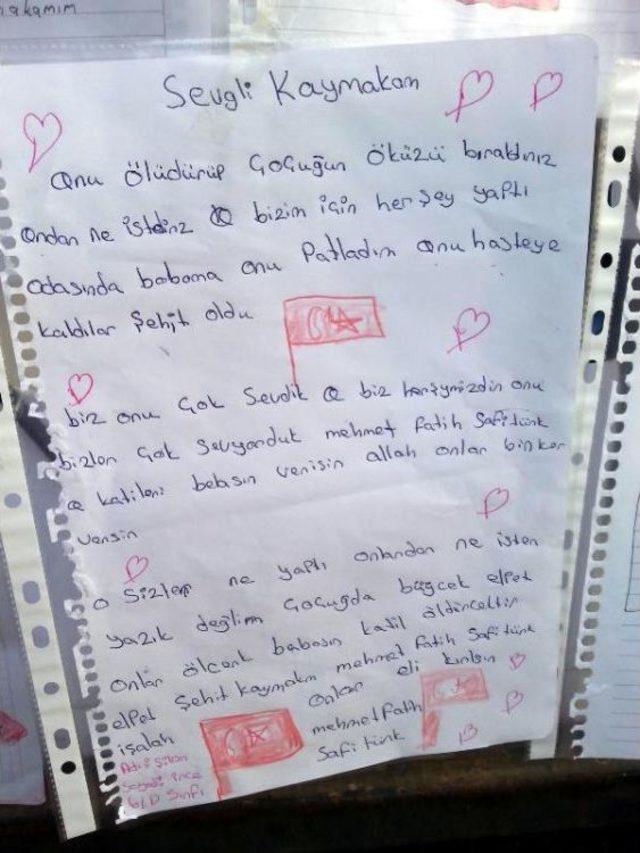 akamım
Sevgli Kaymakam
onu ölüdürüp Çoçuğun Öküzü bıraktınız
ondan ne istdinz O bizim için herşey yaptı
odasında babama onu Patladım onu hasteye
kaldılar Şehit oldu
biz onu Çok Sevdik O biz herşymizdin onu
bizlen Çok Sevyorduk mehmet fatih Safitürk
O katileni belasın versin allah onlar bin ker
versin
O Sizler ne yaptı onlardan ne isten
yazık değilim Çoçuğda büycek elpet
onlar ölcank babasın katil öldürceltir
elpet Şehit kaymakm mehmet fatih Safitürk
işalah onlar eli kırılsın
mehmet fatih
Safitürk
Adı: 
Soyadı: ince
6/D Sınfı